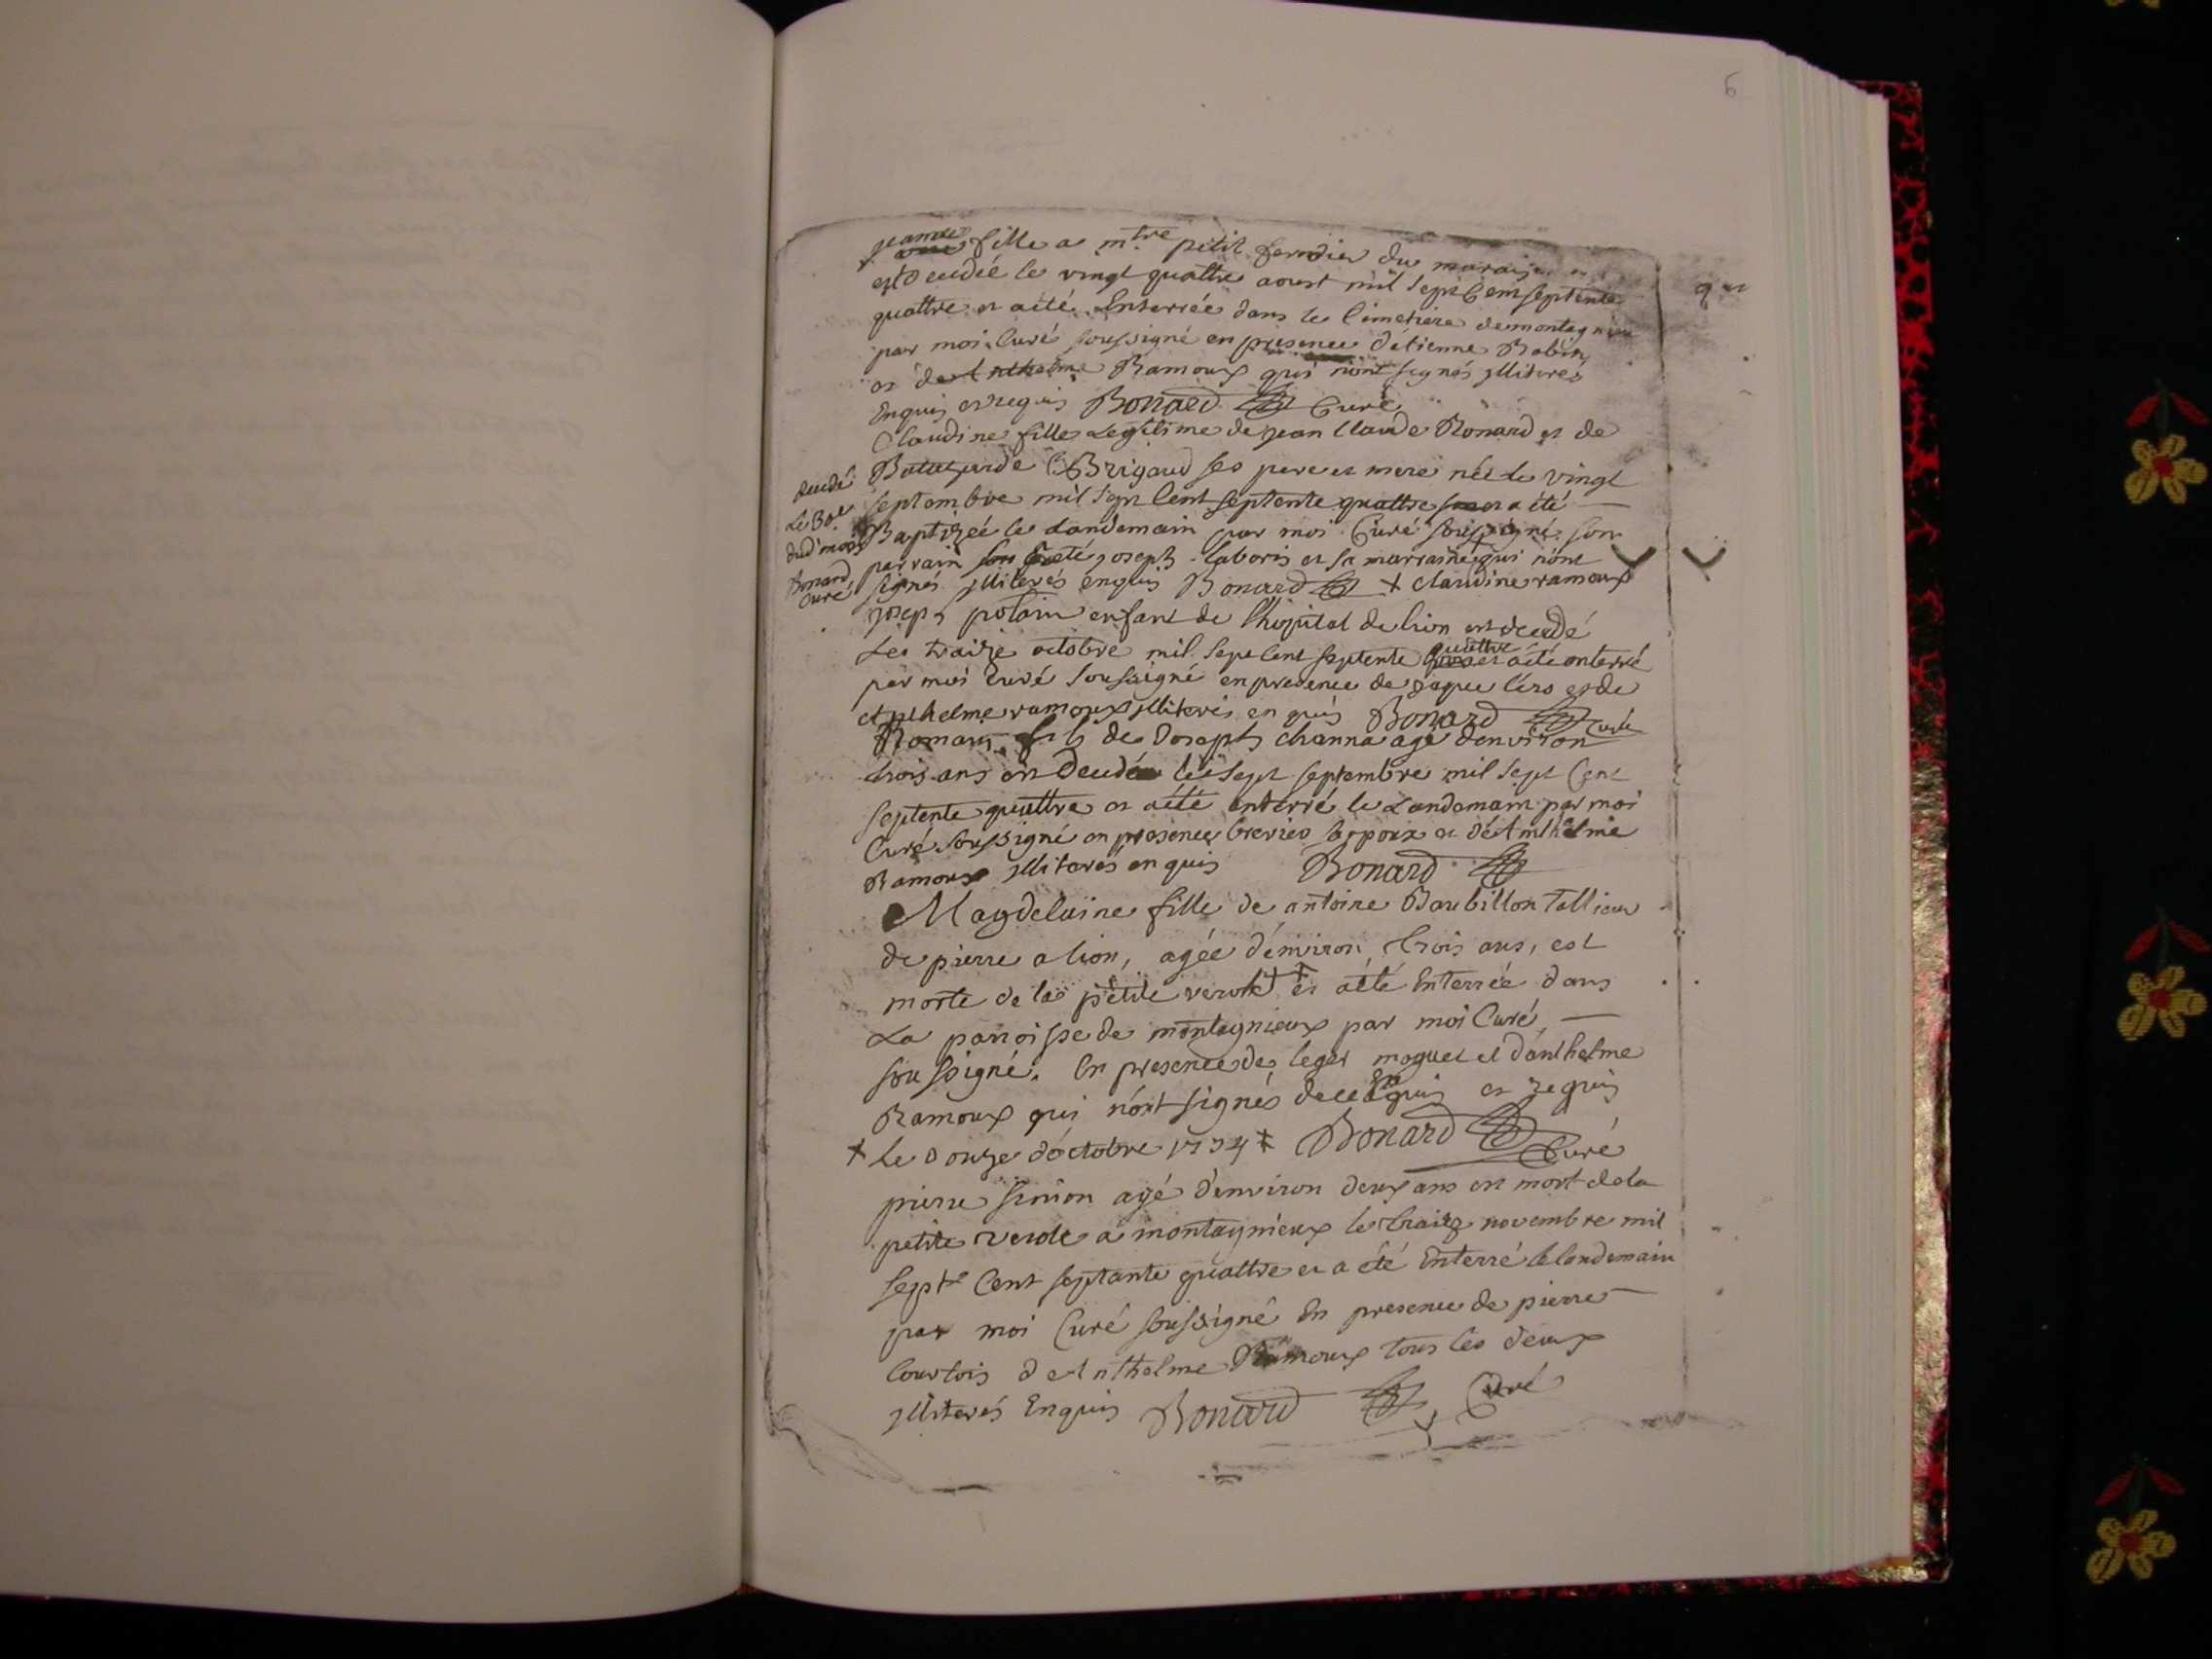 6
jeanne fille a mtre petit fermier du marais
est decedée le vingt quattre aoust mil sept Cent septente
quattre et a été Enterrée dans le Cimetiere de montagnieux
par moi Curé soussigné en presence détienne Robin
et de Anthelme Ramoux qui n'ont signés jlliterés
Enquis et requis Bonard Curé
Claudine fille Legitime de jean Claude Bonard et de
Brigaud ses pere et mere née le vingt
septembre mil sept Cent septente quattre et a été
Baptizée le Landemain par moi Curé soussigné son
parrain joseph laboris et sa marraine qui n'ont
signés jlliterés enquis Bonard + claudine ramoux
decedé
Le 30e
dud' mois
Bonard
Curé
joseph potain enfant de l'hopital de lion est decedé
Les traize octobre mil sept Cent septente quattre et a été enterré
par moi Curé soussigné en presence de jaque et de
Anthelme ramoux jlliterés enquis Bonard Curé
Romain fils de Joseph channa agé denviron
trois ans est decedé le sept septembre mil sept Cent
septente quattre et a été enterré le Landemain par moi
Curé soussigné en presence et de Anthelme
Ramoux jlliterés enquis Bonard
Magdelaine fille de antoine Barbillon Tallieur
de pierre a lion, agée d'environ trois ans, est
morte de la petite verole ++ et a été Enterrée dans
La parroisse de montagnieux par moi Curé
soussigné. En presence de leger moguet et d'anthelme
Ramoux qui n'ont signés de ce Enquis et requis
+ le Douze d'octobre 1774 ‡ Bonard Curé
pierre simon agé d'environ deux ans est mort de la
petite verole a montagnieux le traize novembre mil
sept Cent septante quattre et a été Enterré le landemain
par moi Curé soussigné En presence de pierre
Courtois d'Anthelme Ramoux tous les deux
jlliterés Enquis Bonard Curé